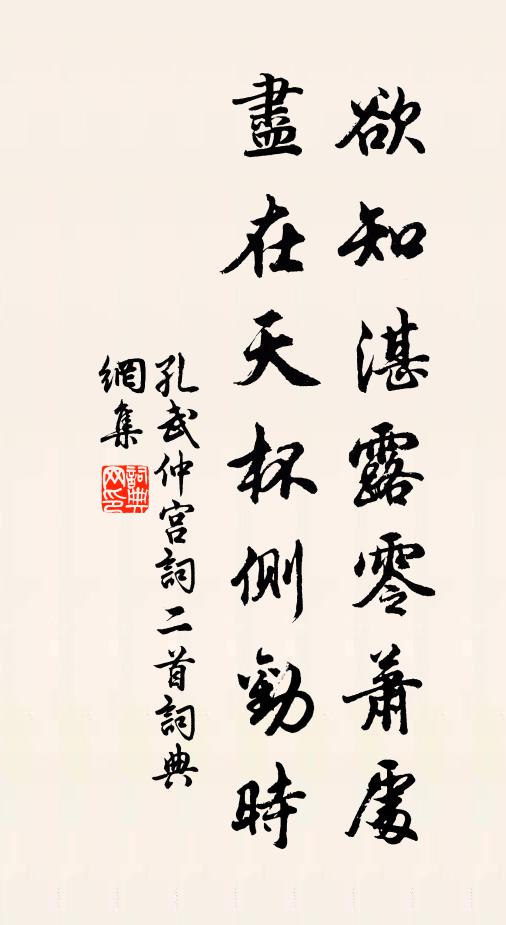 欲知湛露零蕭處
盡在天杯側勸時
孔武仲宮詞二首詞典
網集
詞典
网印